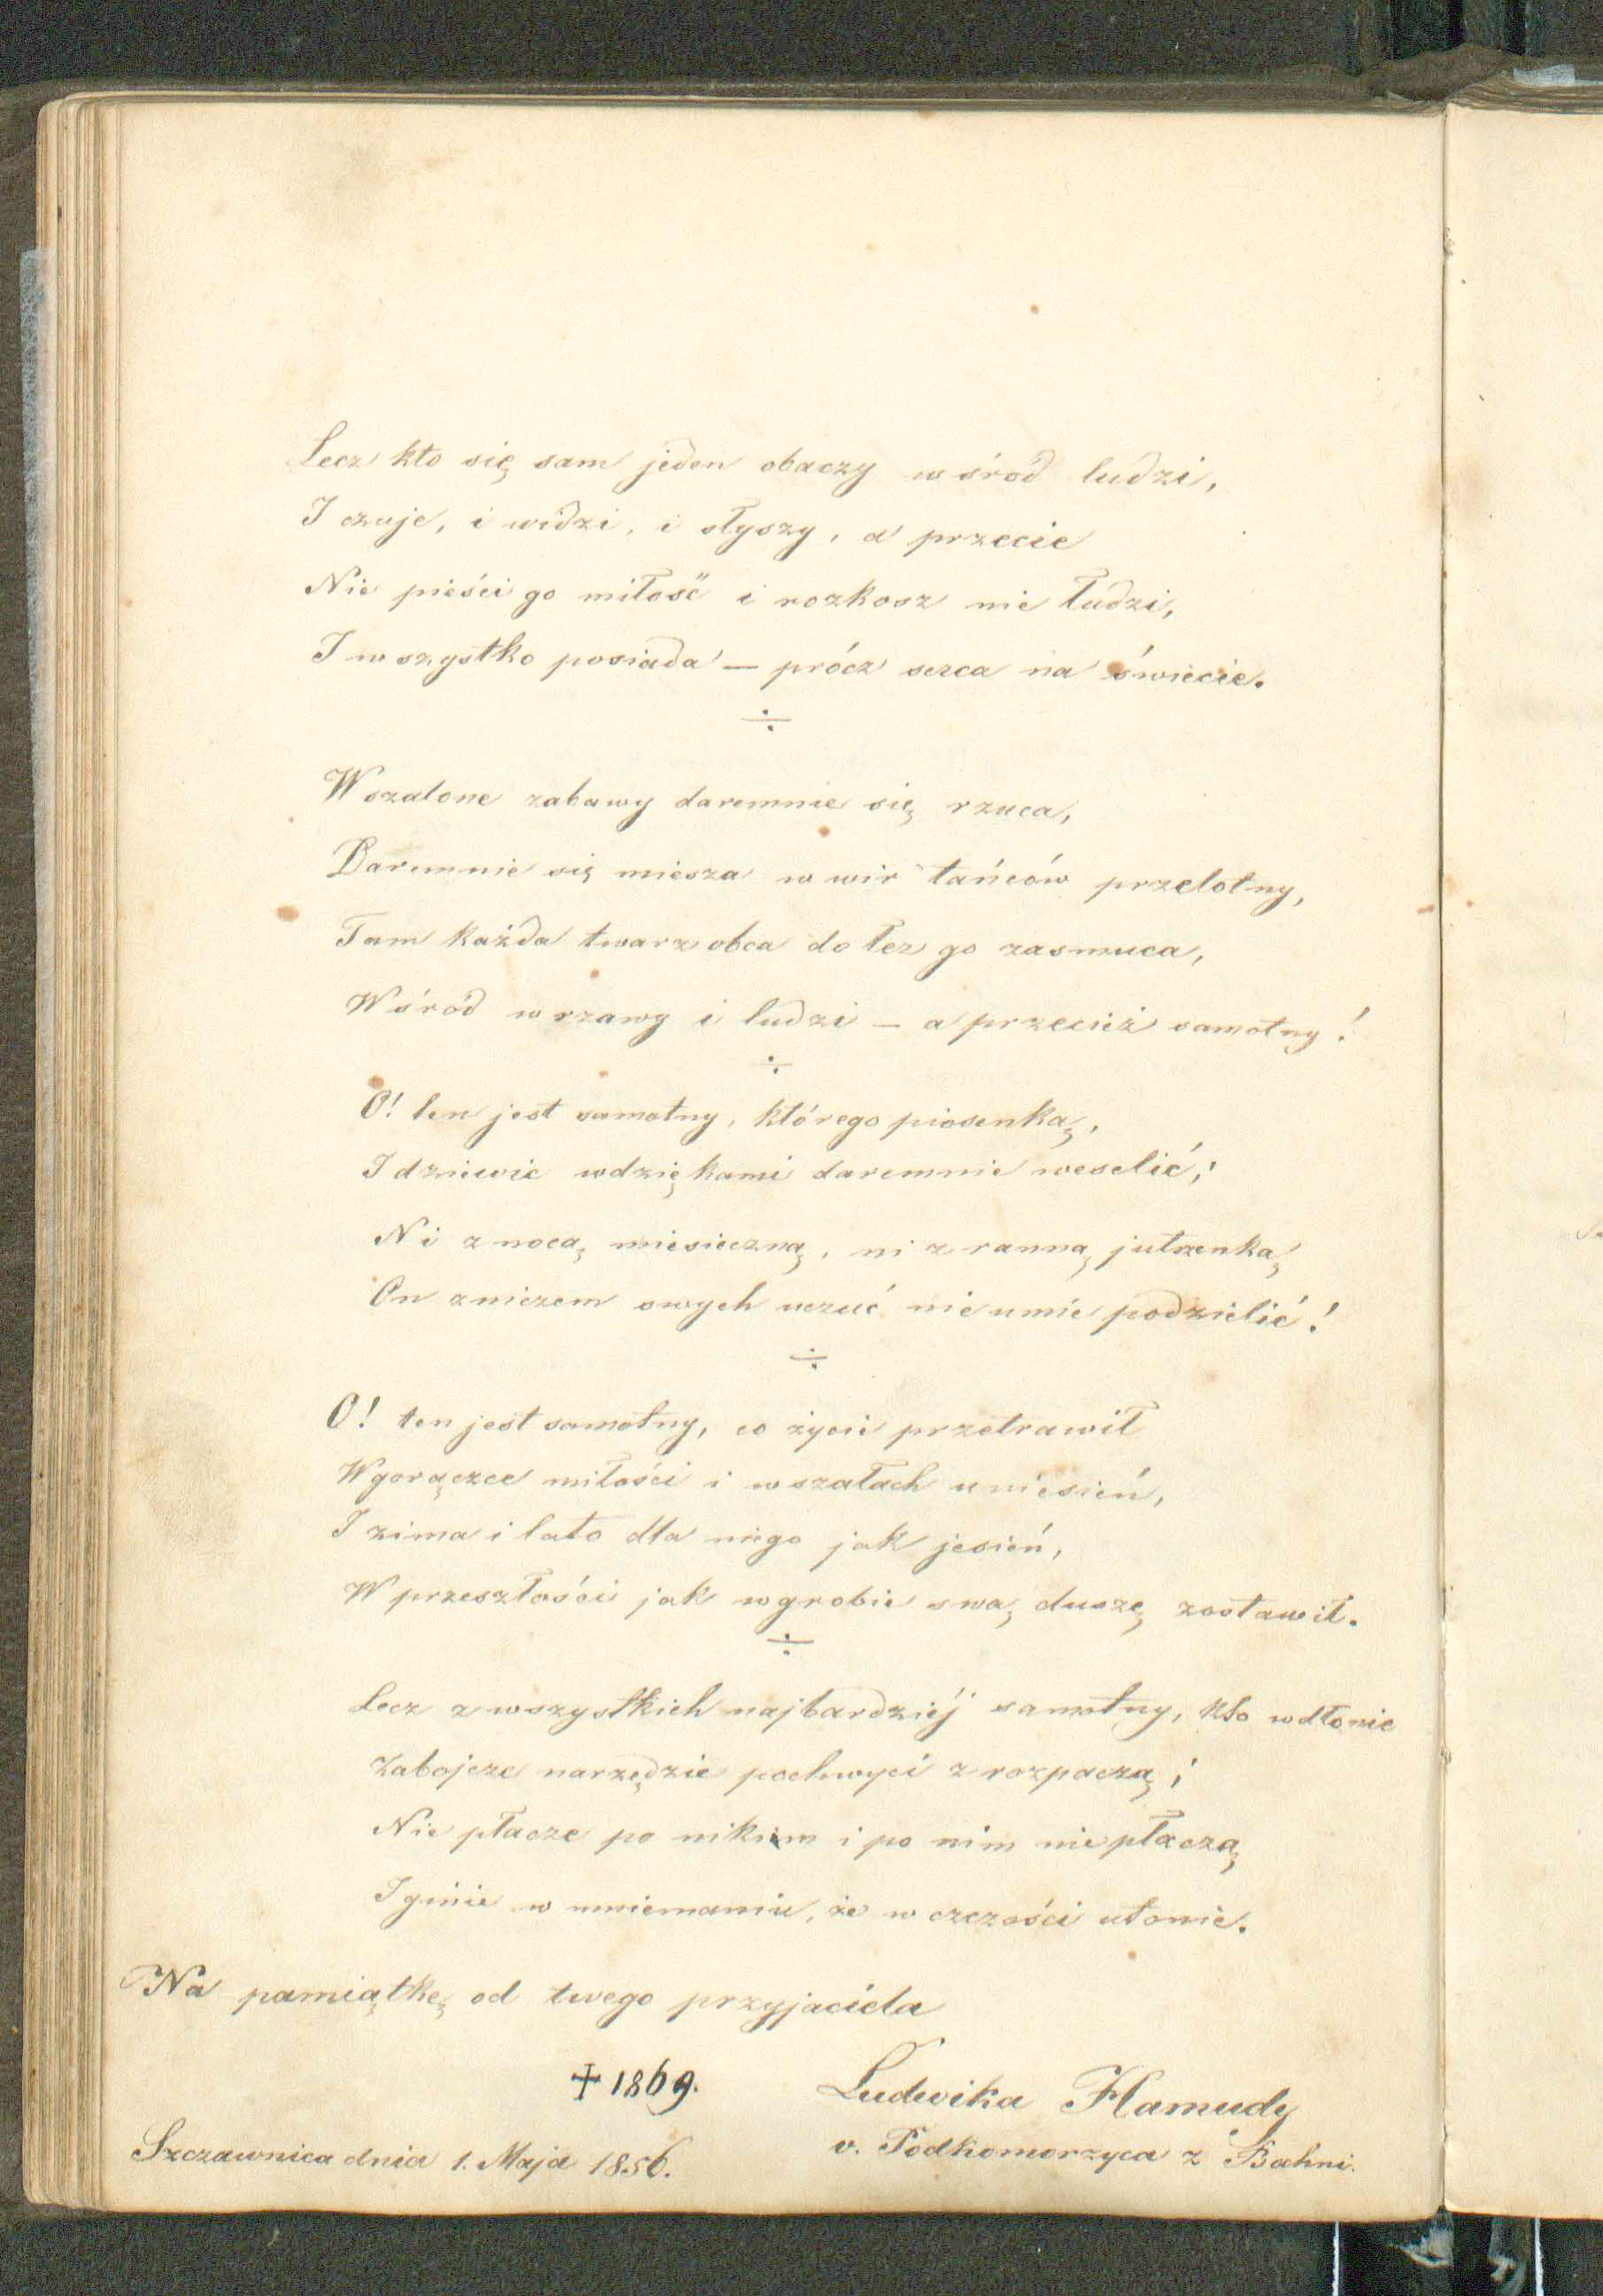 Lecz kto się sam jeden obaczy wśród ludzi,
I czuje, i widzi, i słyszy, a przecie
Nie pieści go miłość i rozkosz nie łudzi,
I wszystko posiada — prócz serca na świecie.
÷
W szalone zabawy daremnie się rzuca,
Daremnie się miesza w wir tańców przelotny,
Tam każda twarz obca do łez go zasmuca,
Wśród wrzawy i ludzi — a przecież samotny!
÷
O! ten jest samotny, którego piosenką,
I dziewic wdziękami daremnie weselić;
Ni z nocą miesieczną, ni z ranną jutrzenką
On z niczem swych uczuć nie umie podzielić!
÷
O! ten jest samotny, co życie przetrawił
W gorączce miłości i w szałach uniesień,
I zima i lato dla niego jak jesień,
W przeszłości jak w grobie swą duszę zostawił.
÷
Lecz z wszystkich najbardziéj samotny, kto w dłonie
Zabojcze narzędzie pochwyci z rozpaczą;
Nie płacze po nikim i po nim nie płaczą
I ginie w mniemaniu, że w czczości utonie.
Na pamiątkę od twego przyjaciela
✝ 1869. Ludwika Hamudy
Szczawnica dnia 1. Maja 1856. v. Podkomorzyca z Bahni.